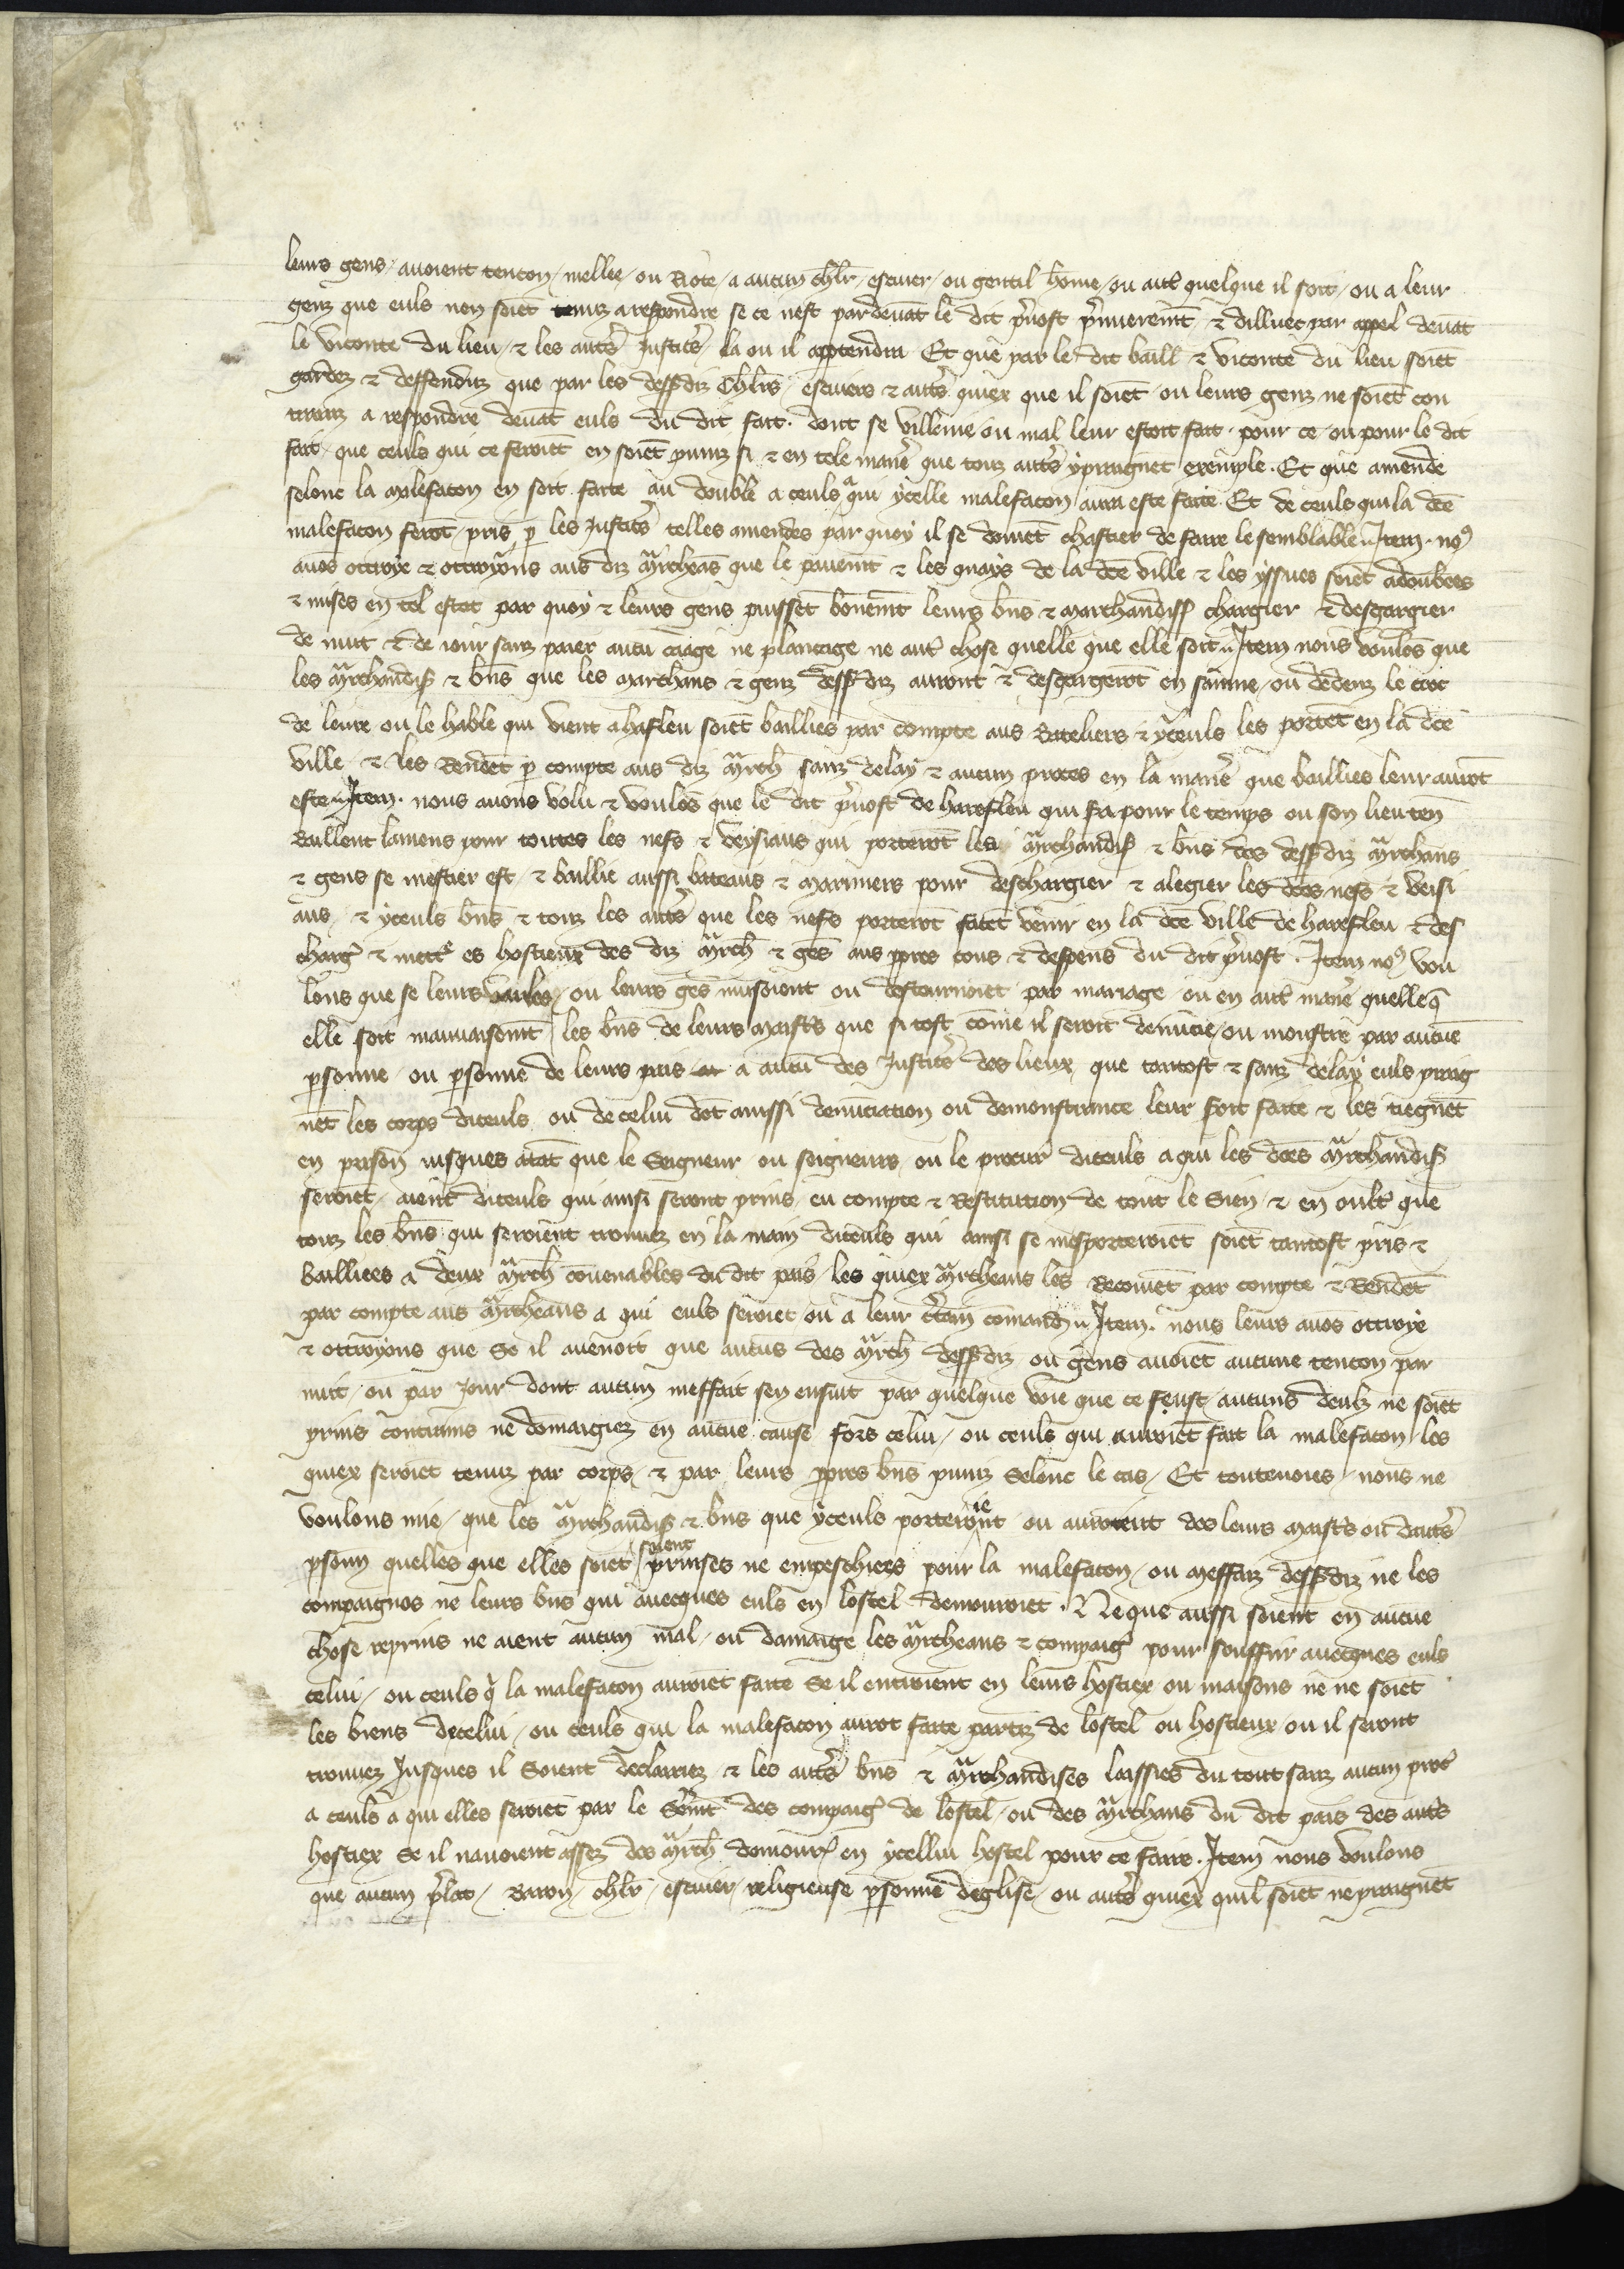 leurs gens / auoient tencon / mellee / ou Riote / a aucun chlr̄ / escuier / ou gentil hōme / ou aut̾ quelque il soit / ou a leur
genz que euls nen soiēt tenuz a respondre se ce nest par deuāt le dit p̾uost p̾mieremēt / & dilluec par appel deuāt
le viconte du lieu / & les aut̾s justic̾s / la ou il appendra Et que par le dit baill & viconte du lieu soiēt
gardez & deffenduz que par les dessusdiz chlr̄s / escuiers & aut̾s quiex que il soiēt / ou leurs genz ne soiēt con
trainz a respondre deuāt euls du dit fait . dont se villenie ou mal leur estoit fait . pour ce / ou pour le dit
fait / que ceuls qui ce feroiēt en soiēt puniz si & en tele manē que touz aut̾s y praignēt exemple . Et que amende
selonc la malefacon en soit faite au double a ceuls a qui ycelle malefacon aura este faite . Et de ceuls qui la dc̄e
malefacon ferōt / pris p̱ les justic̾s telles amendes par quoy il se doiuēt chastier de faire le semblable .. Item . no9
auōs ottroye & ottroyons aus diz m̾rcheās que le pauemēt & les quays de la dc̄e ville & les yssues soiēt adoubees
& mises en tel estat par quoy & leurs gens puissēt bonemēt leurs bn̄s & marchandis̄ chargier & deschargier
de nuit & de iour sanz paier aucū cāiage ne plancage ne aut̾ chose quelle que elle soit .. Item nous voulōs que
les m̾rchandis̄ & bn̄s que les marchans & genz dessusdiz auront & deschargerōt en sainne / ou dedenz le croc
de leure ou le hable qui vient a hafleu soiēt baillies par compte aus Bateliers & yceuls les portēt en la dc̄e
ville / & les Rendēt p̱ compte aus diz m̾rch̄ sanz delay & aucun proces en la manē que baillies leur aurōt
este .. Item . nous auons volu & voulōs que le dit p̾uost de harefleu qui s̾a pour le temps ou son lieuten̄
Baillent lamens pour toutes les nefs & veyssiaus qui porterōt les m̾rchandis̄ & bn̄s des dessusdiz m̾rchans
& gens se mestier est / & baillie aussi bateaus & mariniers pour deschargier & alegier les dc̄es nefs & veissi
aus / & yceuls bn̄s & touz les aut̾s que les nefs porterōt facēt venir en la dc̄e ville de harefleu & des
charg̾ & mett̾ es hostieux des diz m̾rch̄ & gēs aus pp̱res cous & despens du dit p̾uost . Item no9 vou
lons que se leurs varles / ou leurs gēs musoient ou destournoiēt par mariage / ou en aut̾ manē quelleq̄
elle soit mauuaisemt̄ / les bn̄s de leurs maist̾s que si tost cōme il seroit denūcie / ou monstre par aucūe
p̱sonne / ou p̱sonne de leurs pais a aucū des justic̾s des lieux que tantost & sanz delay euls praig
nēt les corps diceuls / ou de celui dōt aiussi denūciation ou demonstrance leur soit faite & les tiegnēt
en prison iusques atāt que le seigneur / ou seigneurs / ou le procur̾ diceuls a qui les dc̄es m̾rchandis̄
seroiēt / aiēnt diceuls qui ainsi seront prins / eu compte & Restitution de tout le sien / & en oult̾ que
touz les bn̄s qui seroient trouuez en la main diceuls qui ainsi se mesporteroiēt soiēt tantost pris &
baillees a deux m̾rch̄ cōuenables du dit pais / les quiex m̾rcheans les Recoiuēt par compte & Rendēt
par compte aus m̾rcheans a qui euls seroiēt / ou a leur c̾tain cōmand̄ .. Item . nous leurs auōs ottroye
& ottroyons que se il auenoit que aucūs des m̾rch̄ dessusdiz ou gens auoiēt aucune tencon par
nuit / ou par jour dont aucun meffait sen ensuit par quelque voie que ce feust / aucuns deulz ne soiēt
prins contrains ne dōmaigiez en aucūe cause fors celui / ou ceuls qui auroiēt fait la malefacon / les
quiex seroiēt tenuz par corps / & par leurs pp̱res bn̄s puniz selonc le cas / Et toutevoies / nous ne
voulons mie / que les m̾rchandis̄ & bn̄s que yceuls porteroient / ou auroient des leurs maist̾s ou daut̾s
p̱sonn̄ quelles que elles soiēt / soient prinses ne empeschiees pour la malefacon / ou meffaiz dessusdiz ne les
compaignōs ne leurs bn̄s qui auecques euls en lostel demouroiēt . Ne que aussi soient en aucūe
chose reprins ne aient aucun mal / ou damaige les m̾rcheans & compaig̾ pour souffrir auecques euls
celui / ou ceuls q̾ la malefacon auroiēt faite se il entroient en leurs hostiex ou maisons ne ne soiēt
les biens dicelui / ou ceuls qui la malefacon aurōt faite partiz de lostel ou hostieux ou il seront
trouuez jusques il soient declairiez & les aut̾s bn̄s & m̾rchandises laissies du tout sanz aucun proc̾
a ceuls a qui elles seroiēt par le s̾emt̄ des compaig̾ de lostel / ou des m̾rchans du dit pais des aut̾s
hostiex se il nauoient assez des m̾rch̄ demour̾ en ycellui hostel pour ce faire . Item nous voulons
que aucun p̾lat / Baron / chlr̄ / escuier / religieuse p̱sonne deglise / ou aut̾s quiex quil soiēt ne praignēt